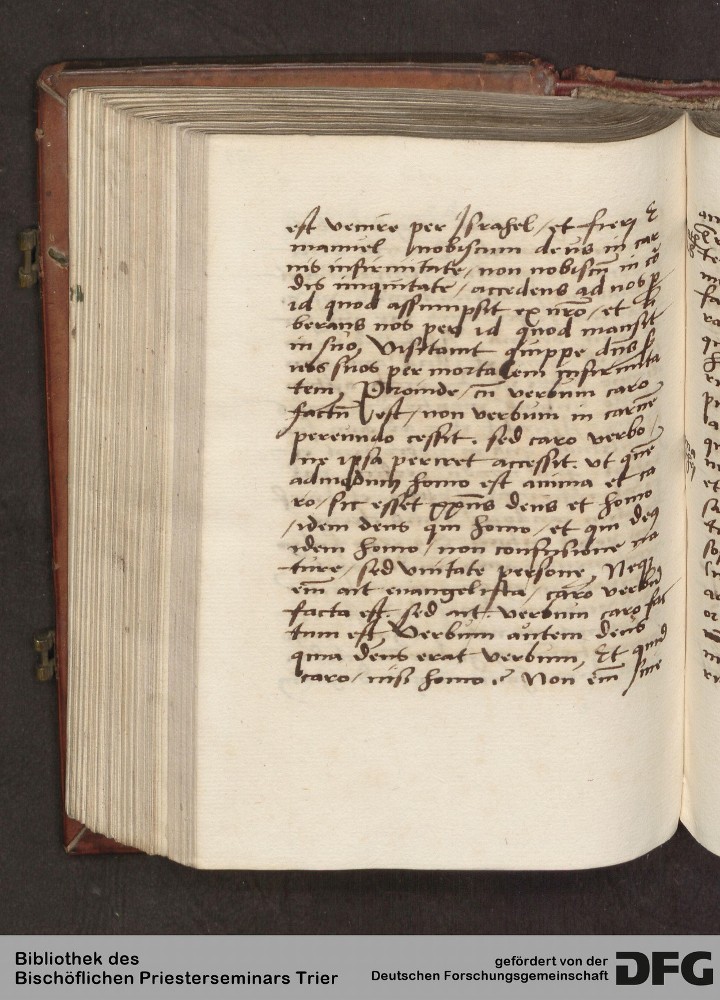 est venire per Israhel / et fieri E
manuel nobiscum deus in car
nis infirmitate, non nobiscū in cor
dis iniquitate / accedens ad nos p
id quod assumpsit ex nr̄o, et li
berans nos per id quod mansit
in suo, Visitauit quippe dn̄s
suos per mortalem infirmita
tem, Proinde, cū verbum caro
factū est, non verbum in carnē
pereundo cessit. sed caro verbo,
ne ipsa periret accessit. vt quē
admodum homo est anima et ca
ro, sic esset xp̄us deus et homo
idem deus qui homo, et qui deus
idem homo, non confusione na
ture, sed vnitate persone, Neque
eīm ait euangelista, caro verbū
facta est, sed ait. verbum caro fac
tum est, Verbum autem deus
quia deus erat verbum, Et quid
caro, nisi homo ē Non eīm sine
Bibliothek des
Bischöflichen Priesterseminars Trier
gefördert von der
Deutschen Forschungsgemeinschaft
DFG